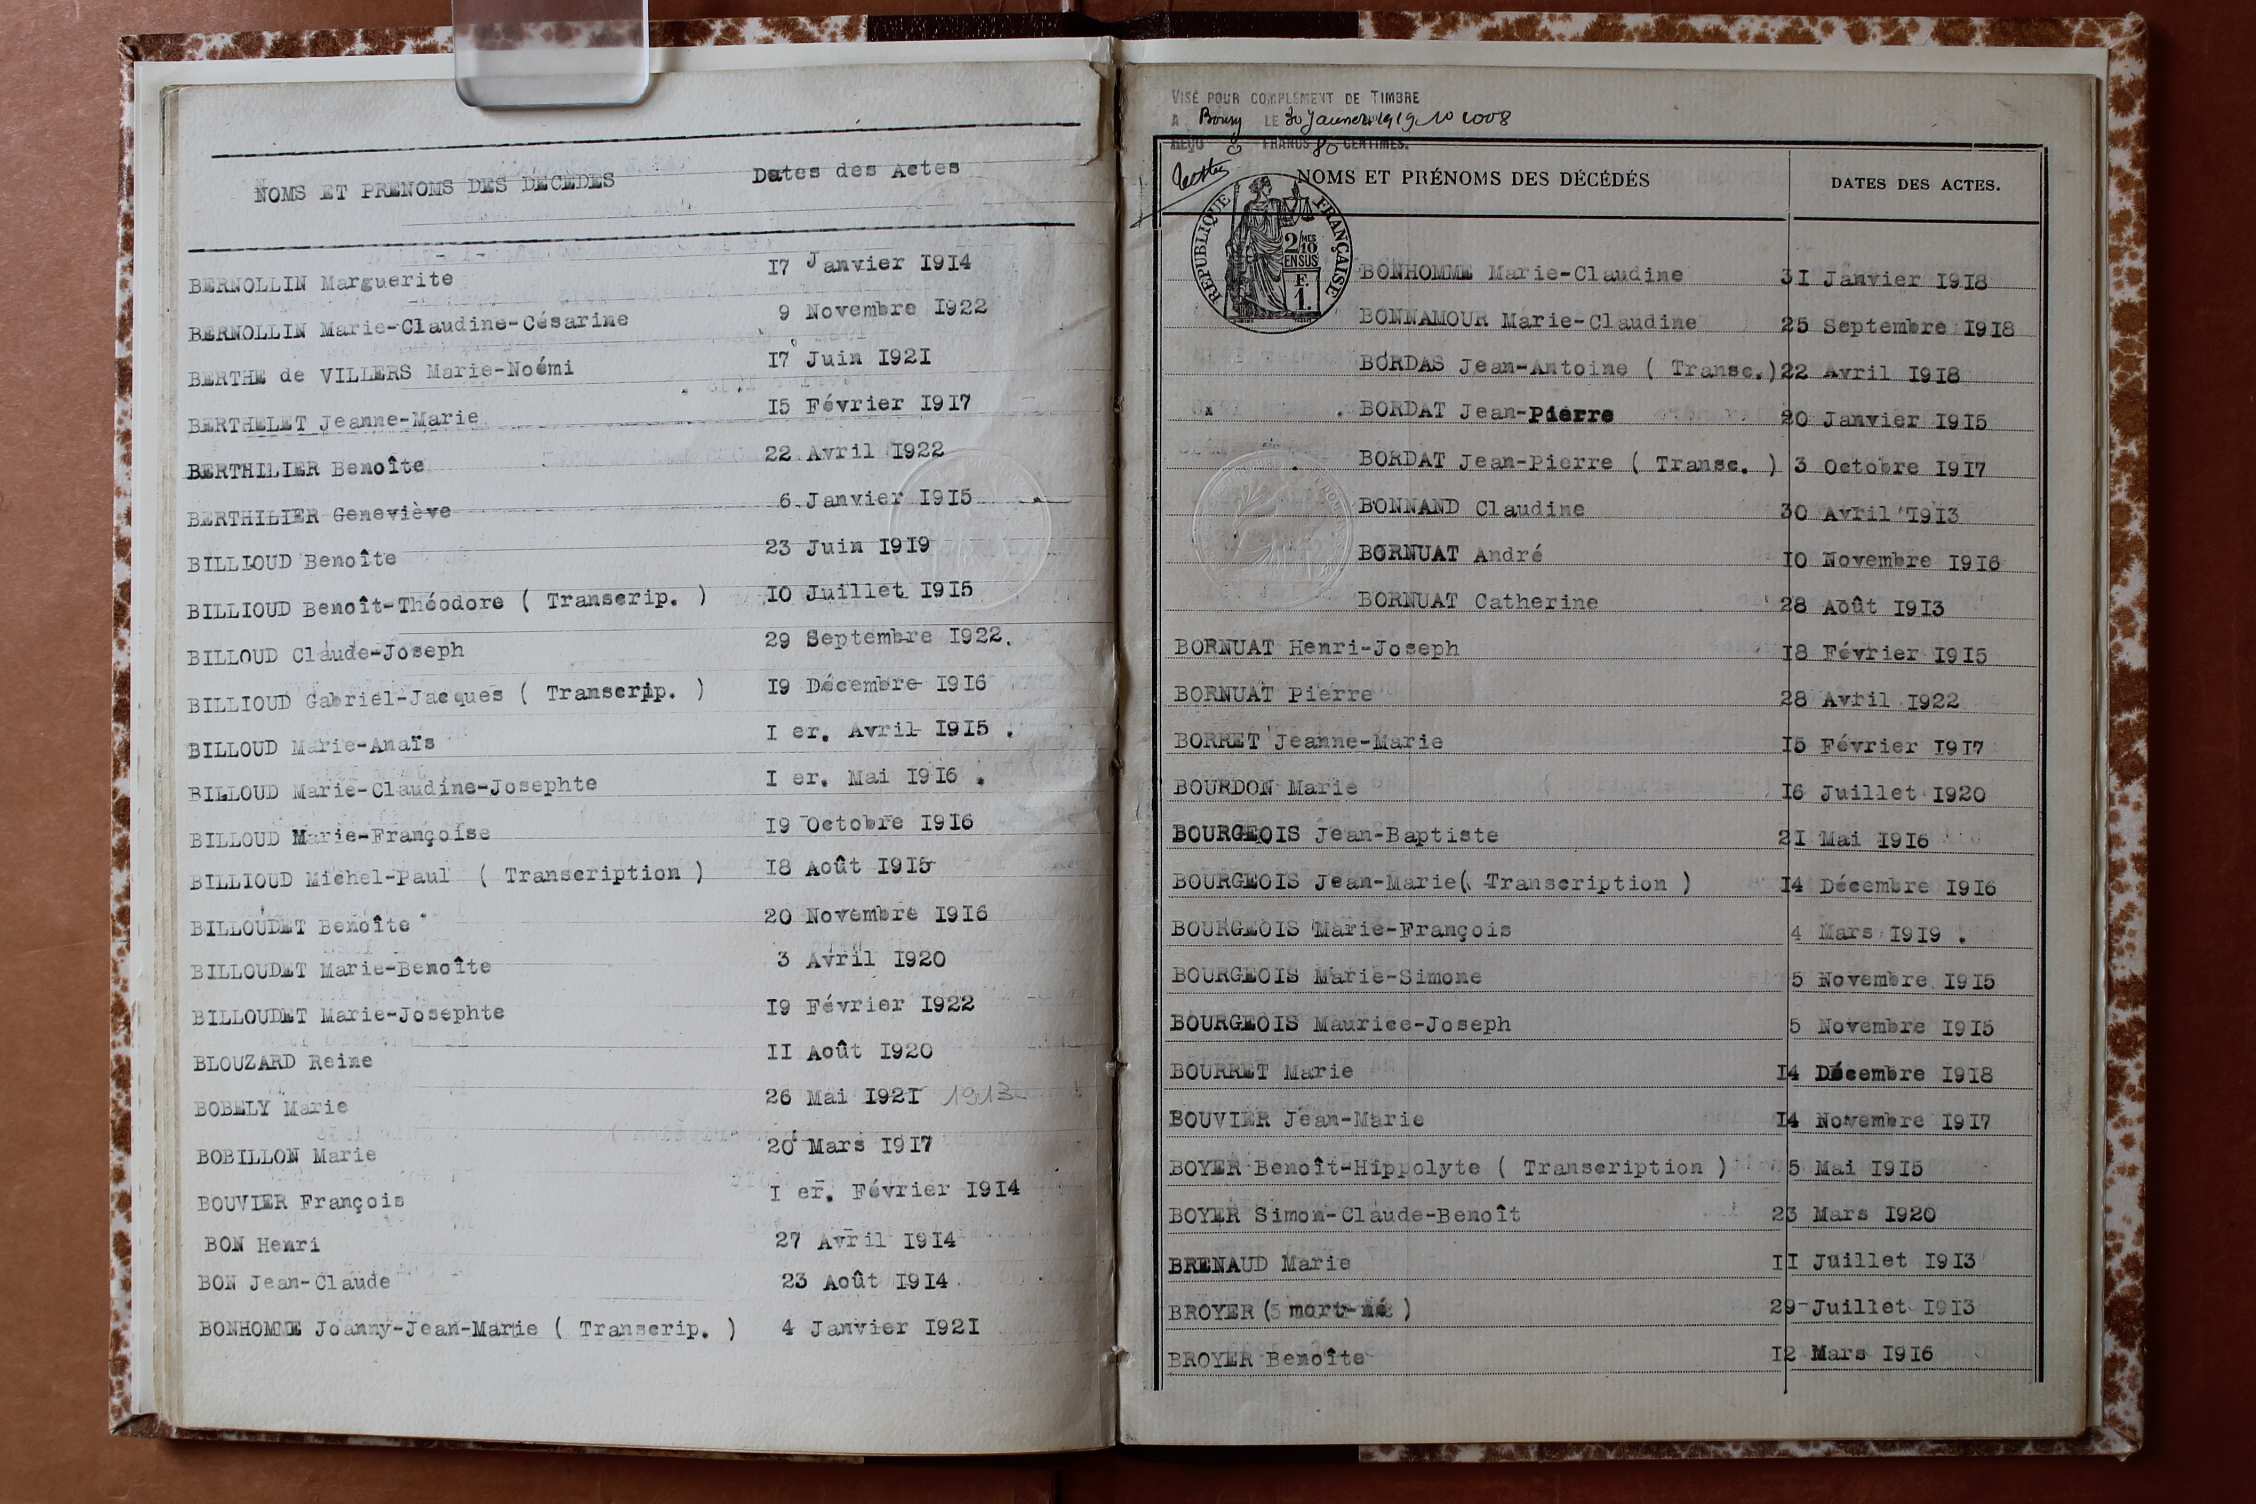 NOMS ET PRENOMS DES DECEDES Dates des Actes
BERNOLLIN Marguerite 17 Janvier 1914
BERNOLLIN Marie-Claudine-Césarine 9 Novembre 1922
BERTHE de VILLERS Marie-Noémi 17 Juin 1921
BERTHELET Jeanne-Marie 15 Février 1917
BERTHILIER Benoîte 22 Avril 1922
BERTHILIER Geneviève 6 Janvier 1915
BILLIOUD Benoîte 23 Juin 1919
BILLIOUD Benoît-Théodore ( Transcrip. ) 10 Juillet 1915
BILLOUD Claude-Joseph 29 Septembre 1922.
BILLIOUD Gabriel-Jacques ( Transcrip. ) 19 Décembre 1916
BILLOUD Marie-Anaïs I er. Avril 1915 .
BILLOUD Marie-Claudine-Josephte I er. Mai 1916 .
BILLOUD Marie-Françoise 19 Octobre 1916
BILLIOUD Michel-Paul ( Transcription ) 18 Août 1915
BILLOUDET Benoîte 20 Novembre 1916
BILLOUDET Marie-Benoîte 3 Avril 1920
BILLOUDET Marie-Josephte 19 Février 1922
BLOUZARD Reine 11 Août 1920
BOBELY Marie 26 Mai 1921 1913
BOBILLON Marie 20 Mars 1917
BOUVIER François I er. Février 1914
BON Henri 27 Avril 1914
BON Jean-Claude 23 Août 1914
BONHOMME Joanny-Jean-Marie ( Transcrip. ) 4 Janvier 1921
VISÉ POUR COMPLÉMENT DE TIMBRE
A Bourg LE 30 Janvier 1919
REÇU FRANCS 80 CENTIMES.
NOMS ET PRÉNOMS DES DÉCÉDÉS DATES DES ACTES.
RÉPUBLIQUE FRANÇAISE
2/10 MES
EN SUS
F.
1.
BONHOMME Marie-Claudine 31 Janvier 1918
BONNAMOUR Marie-Claudine 25 Septembre 1918
BORDAS Jean-Antoine ( Transc.) 22 Avril 1918
BORDAT Jean-Pierre 20 Janvier 1915
BORDAT Jean-Pierre ( Transc. ) 3 Octobre 1917
BONNAND Claudine 30 Avril 1913
BORNUAT André 10 Novembre 1916
BORNUAT Catherine 28 Août 1913
BORNUAT Henri-Joseph 18 Février 1915
BORNUAT Pierre 28 Avril 1922
BORRET Jeanne-Marie 15 Février 1917
BOURDON Marie 16 Juillet 1920
BOURGEOIS Jean-Baptiste 21 Mai 1916
BOURGEOIS Jean-Marie( Transcription ) 14 Décembre 1916
BOURGEOIS Marie-François 4 Mars 1919 .
BOURGEOIS Marie-Simone 5 Novembre 1915
BOURGEOIS Maurice-Joseph 5 Novembre 1915
BOURRET Marie 14 Décembre 1918
BOUVIER Jean-Marie 14 Novembre 1917
BOYER Benoît-Hippolyte ( Transcription ) 5 Mai 1915
BOYER Simon-Claude-Benoît 23 Mars 1920
BRENAUD Marie 11 Juillet 1913
BROYER ( mort-né ) 29 Juillet 1913
BROYER Benoîte 12 Mars 1916